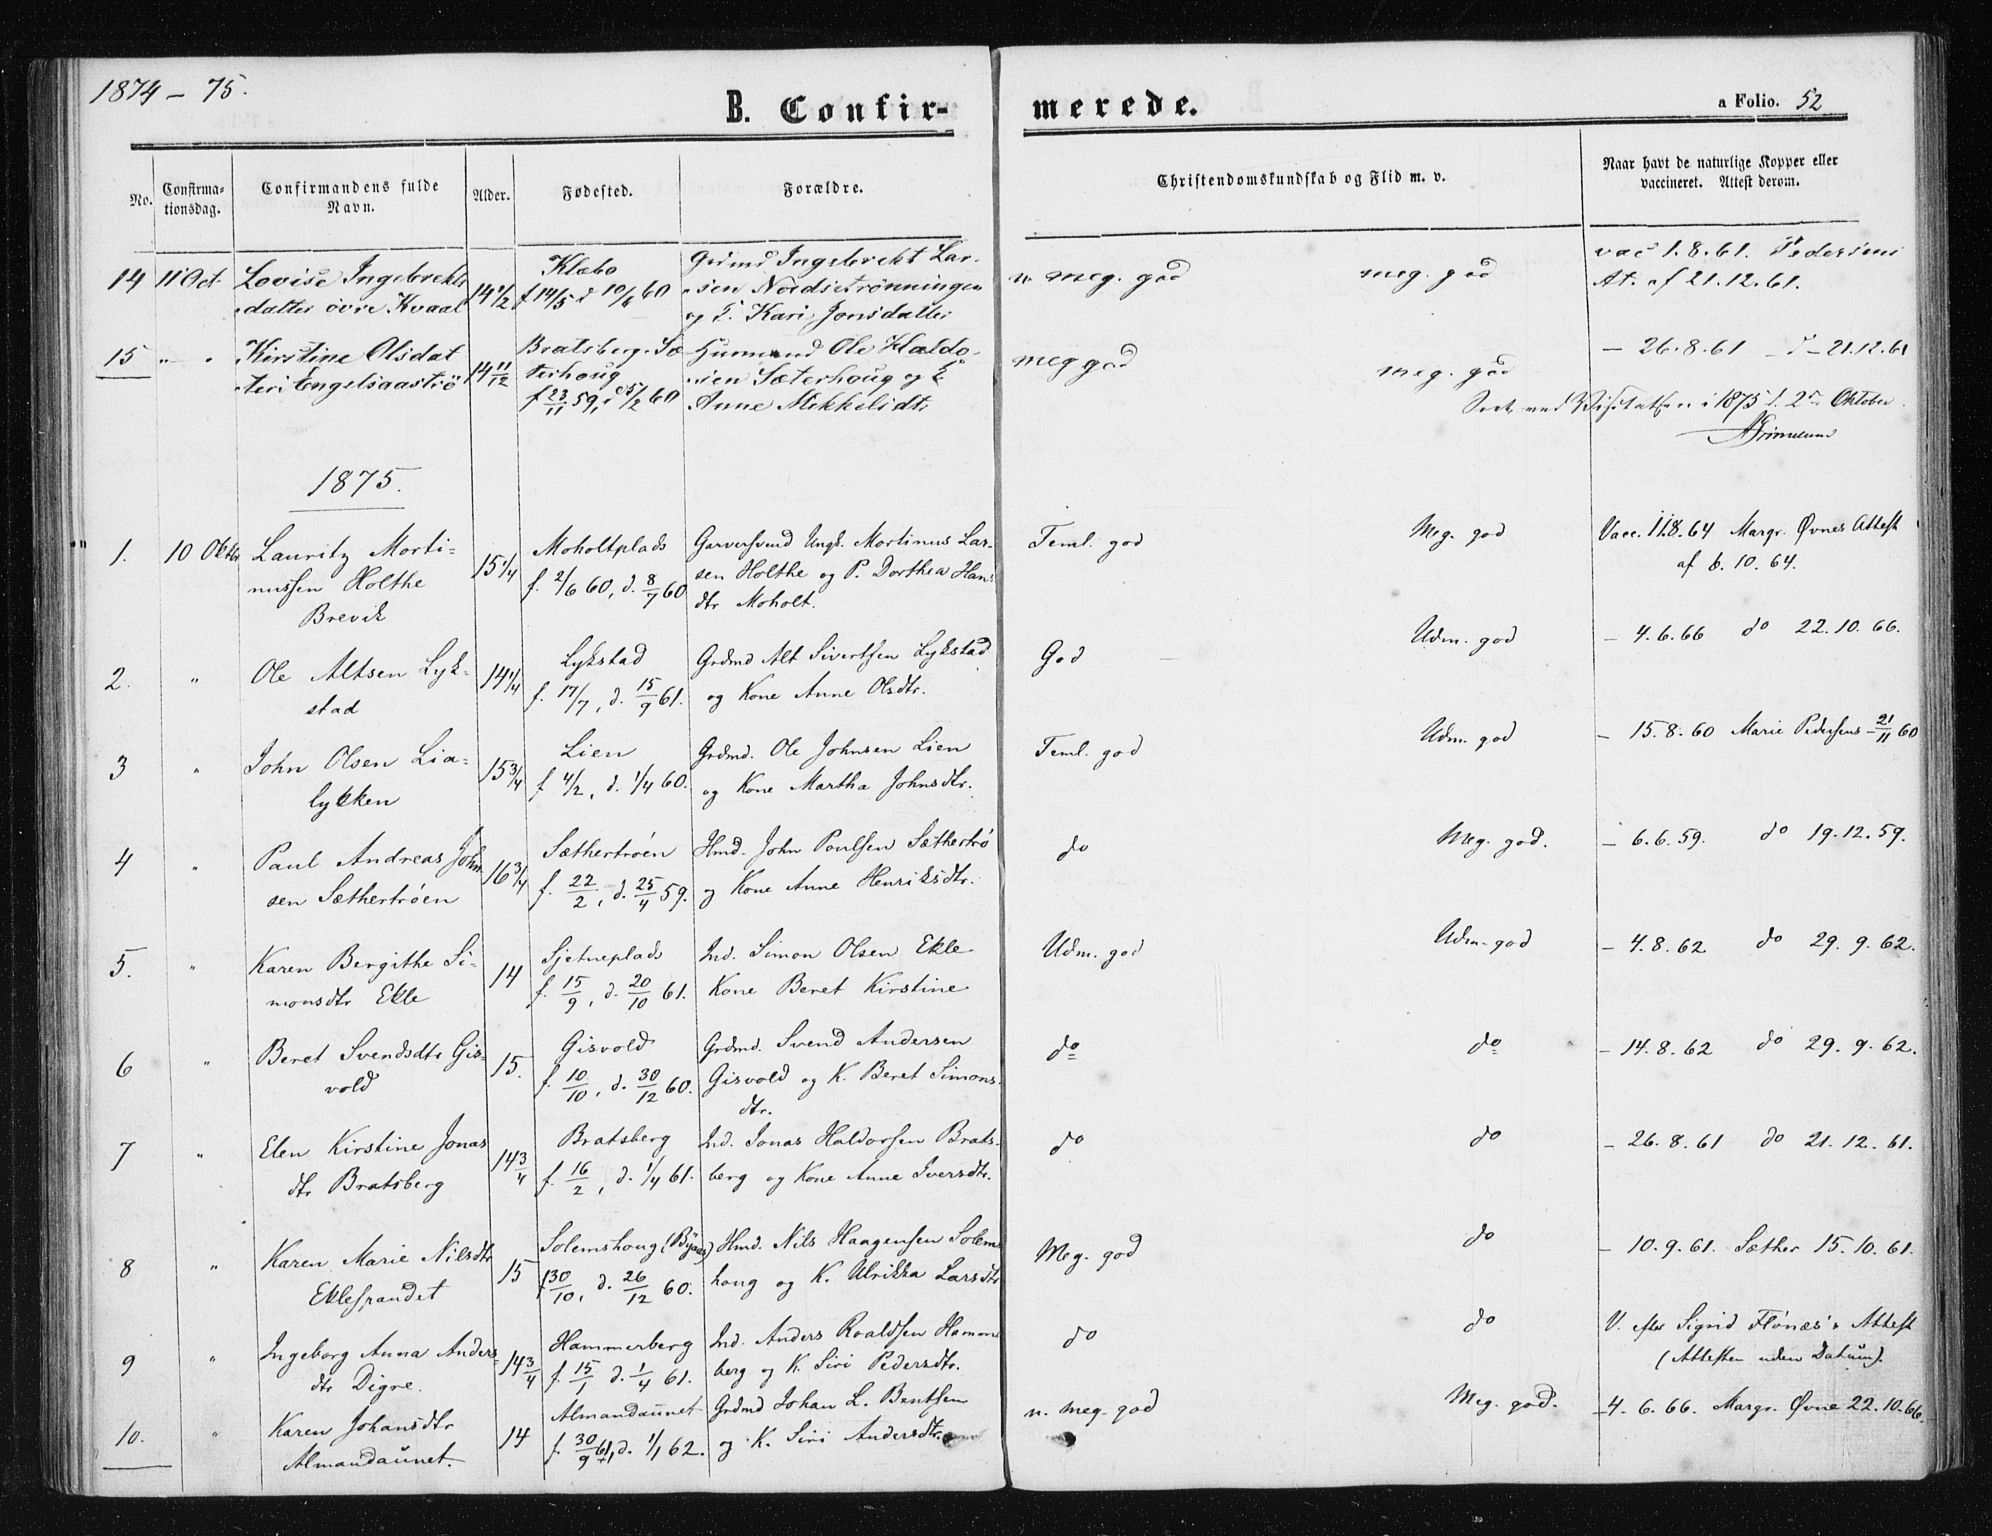 1874 – 75.
B. Confir-
merede.
a Folio. 52
No.
Confirma-
tionsdag.
Confirmandens fulde
Navn.
Alder.
Fødested.
Forældre.
Christendomskundskab og Flid m. v.
Naar havt de naturlige Kopper eller
vaccineret. Attest derom.
14 11 Oct. Lovise Ingebrekts
datter övre Kvaal
14 1/2
Klæbo
f 14/5 d 10/6 60
Grdmd Ingebrekt Lar-
sen Nordsetrønningen
og Kari Jonsdatter
n. meg. god
meg. god
vac 1.8.61. Pedersens
At. af 21.12.61.
15 " " Kirstine Olsdat
ter Engelsaaströ
14 11/12
Bratsberg. Sæ
terhoug
f 23/11 59, d 5/2 60
Husmand Ole Haldo-
rsen Sæterhoug og
Anne Mikkelsdtr
meg god
meg. god
– 26.8.61 – d – 21.12.61
ved Visitatsen i 1875 d. 2 Oktober.
Grimelund
1875.
1. 10 Oktbr Lauritz Morti-
nussen Holthe
Brevik
15 1/4
Moholtplads
f. 2/6 60, d. 8/7 60
Garversvend Ungk. Mortinus Lar-
sen Holthe og P. Dorthea Hans
dtr Moholt.
Teml. god
Meg. god
Vacc. 11.8.64 Margr. Øvnes Attest
af 6. 10. 64.
2. " Ole Altsen Lyk-
stad
14 1/4
Lykstad
f. 17/7, d. 15/9 61.
Grdmd Alt Sivertsen Lykstad
og Kone Anne Olsdtr.
God
Udm. god
– 4.6.66 do 22.10.66.
3 " John Olsen Lia-
lykken
15 3/4
Lien
f 4/2, d. 1/4 60.
Grdmd. Ole Johnsen Lien
og Kone Martha Johnsdtr.
Teml. god
Udm. god
– 15.8.60 Marie Pedersens – 21/11 60
4 " Paul Andreas John
sen Sæthertröen
16 3/4
Sæthertröen
f. 22/2, d. 25/4 59.
Hmd. John Poulsen Sæthertrö
og Kone Anne Henriksdtr.
do
Meg. god.
– 6.6.59. do 19.12.59.
5. " Karen Bergithe Si-
monsdtr Ekle
14
Sjetneplads
f. 15/9, d. 20/10 61.
Ind. Simon Olsen Ekle
Kone Beret Kirstine
Udm. god
Udm. god
– 4.8.62 do 29.9.62.
6 " Beret Svendsdtr Gis-
vold
15.
Gisvold
f. 10/10, d. 30/12 60.
Grdmd. Svend Andersen
Gisvold og K. Beret Simons-
dtr.
do
do
– 14.8.62 do 29.9.62.
7 " Elen Kirstine Jonas
dtr Bratsberg
14 3/4
Bratsberg
f. 16/2, d. 1/4 61.
Ind. Jonas Haldorsen Brats-
berg og Kone Anne Iversdtr.
do
do
– 26.8.61 do 21.12.61.
8 " Karen Marie Nilsdtr
Eklesfandet
15
Solemshoug (Bynes)
f 30/10, d. 26/12 60.
Hmd. Nils Haagensen Solems
houg og K. Ulrikka Larsdtr
Meg. god
do
– 10.9.61. Sæther 15.10.61.
9 " Ingeborg Anna Anders-
dtr Digre.
14 3/4
Hammerberg
f. 15/1 d. 1/4 61.
Ind. Anders Roaldsen Hammer
berg og K. Siri Pedersdtr.
do
do
V. efter Sigrid Flönæs's Attest
(Attesten uden Datum).
10. " Karen Johansdtr
Almaadaunet.
14
Almaadaunet
f. 30/9 61, d. 1/1 62.
Grdmd Johan L. Bentsen
og K. Siri Andersdtr.
n. meg. god
Meg. god.
– 4. 6. 66. Margr. Øvne 22.10.66.